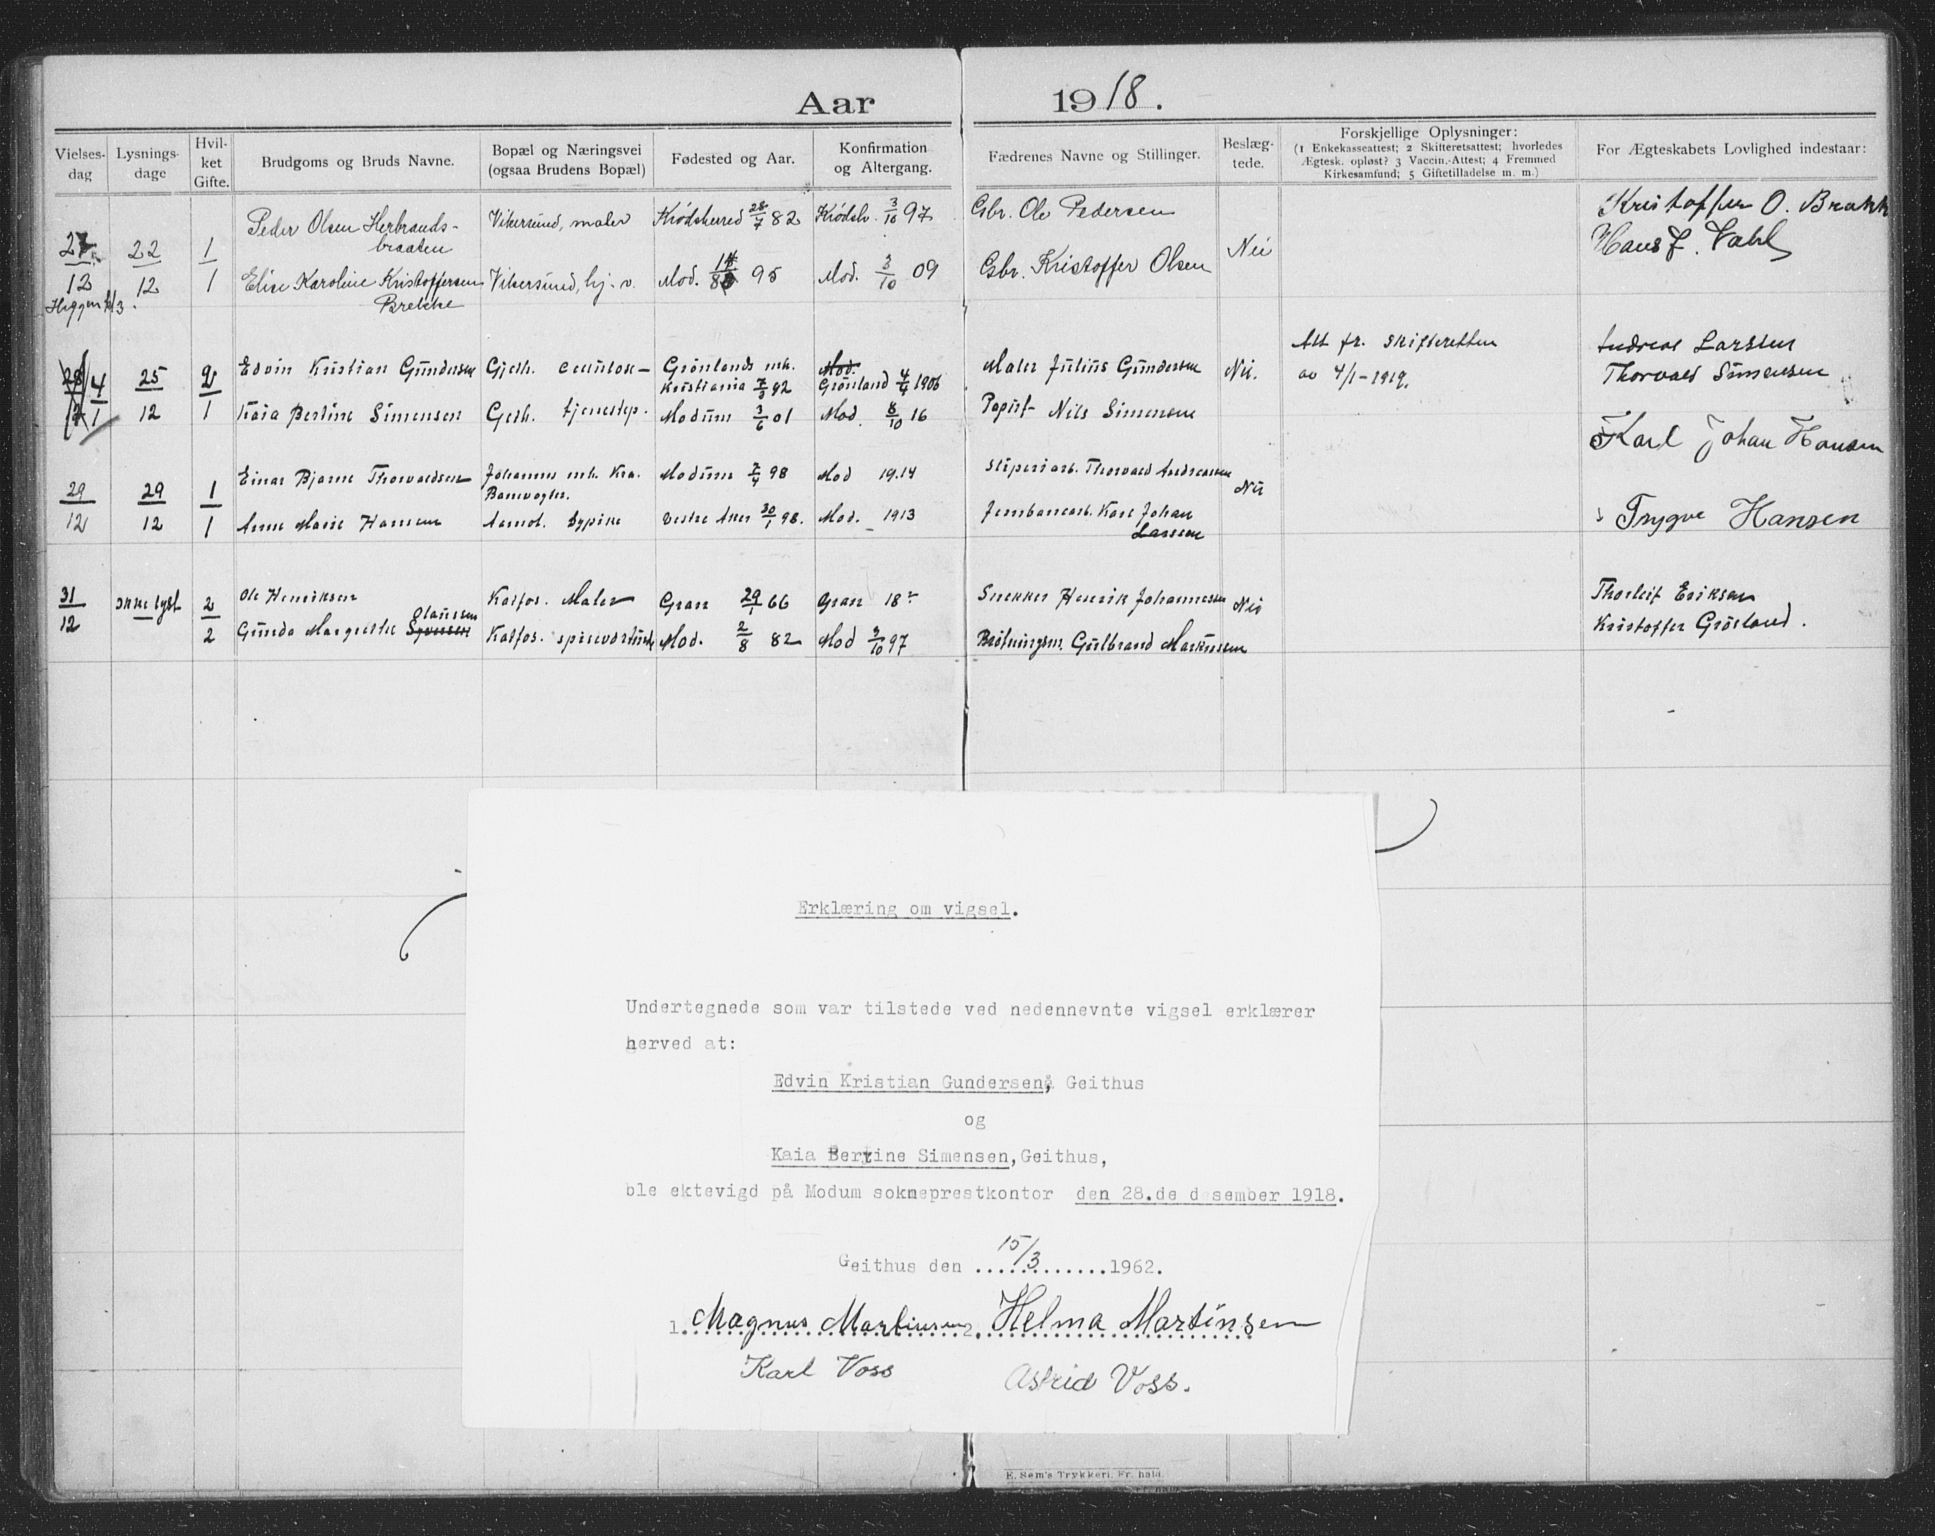 Aar 1918.
Vielses-dag
Lysnings-dage
Hvil-ket Gifte.
Brudgoms og Bruds Navne.
Bopæl og Næringsvei
(ogsaa Brudens Bopæl)
Fødested og Aar.
Konfirmation
og Altergang.
Fædrenes Navne og Stillinger.
Beslæg-tede.
Forskjellige Oplysninger:
(1 Enkekasseattest; 2 Skifteretsattest; hvorledes
Ægtesk. opløst? 3 Vaccin.-Attest; 4 Fremmed
Kirkesamfund; 5 Giftetilladelse m. m.)
For Ægteskabets Lovlighed indestaar:
27/12 22/12 1 Peder Olsen Herbrands-braaten Vikersund, maler Krødsherred 28/7 82 Krødsh. 3/10 97 Gbr. Ole Pedersen Nei Kristoffer O. Brækk
1 Elise Karoline Kristoffersen Brekke Vikersund, hj. v. Mod. 8 95 Mod. 3/10 09 Gbr. Kristoffer Olsen Hans J. Vahl
28/12 4/1 25/12 2 Edvin Kristian Gundersen Gjeth. Grønlands mh. Kristiania 7/3 92 Mod. Grønland 4/4 1906 Maler Julius Gundersen Nei. Att fr. skifteretten av 4/1-1919. Andreas Larsen
1 Kaia Bertine Simensen Geth. tjenestep. Modum 3/6 01 Mod. 8/10 16 Papirf Nils Simensen Thorvald Simensen
29/12 29/12 1 Einar Bjarne Thorvaldsen Johannes mh. Kra. Banevogter. Modum 7/4 98 Mod 1914 Sliperiarb. Thorvald Andreassen Nei Karl Johan Hansen
1 Anne Marie Hansen Aamot. Sypike Vestre Aker 30/1 98. Mod. 1913 Jernbanearb. Karl Johan Larssen Trygve Hansen
31/12 ikke lyst 2 Ole Henriksen Katfos. Maler Gran 29/1 66 Gran 18 Snekker Henrik Johannessen Nei Thorleif Eriksen
2 Gunda Margrethe Olaussen Syversen Katfos. Mod. 2/8 82 Mod 3/10 97 Brøtningsm. Gulbrand Markussen Kristoffer Grøsland.
Erklæring om vigsel.
Undertegnede som var tilstede ved nedennevnte vigsel erklærer
herved at:
Edvin Kristian Gundersen, Geithus
og
Kaia Bertine Simensen, Geithus,
ble ektevigd på Modum sokneprestkontor den 28.de desember 1918.
Geithus den 15/3 1962.
1. Magnus Martinsen 2. Helma Martinsen
Karl Voss Astrid Voss.
E. Sem's Trykkeri, Fr. hald.